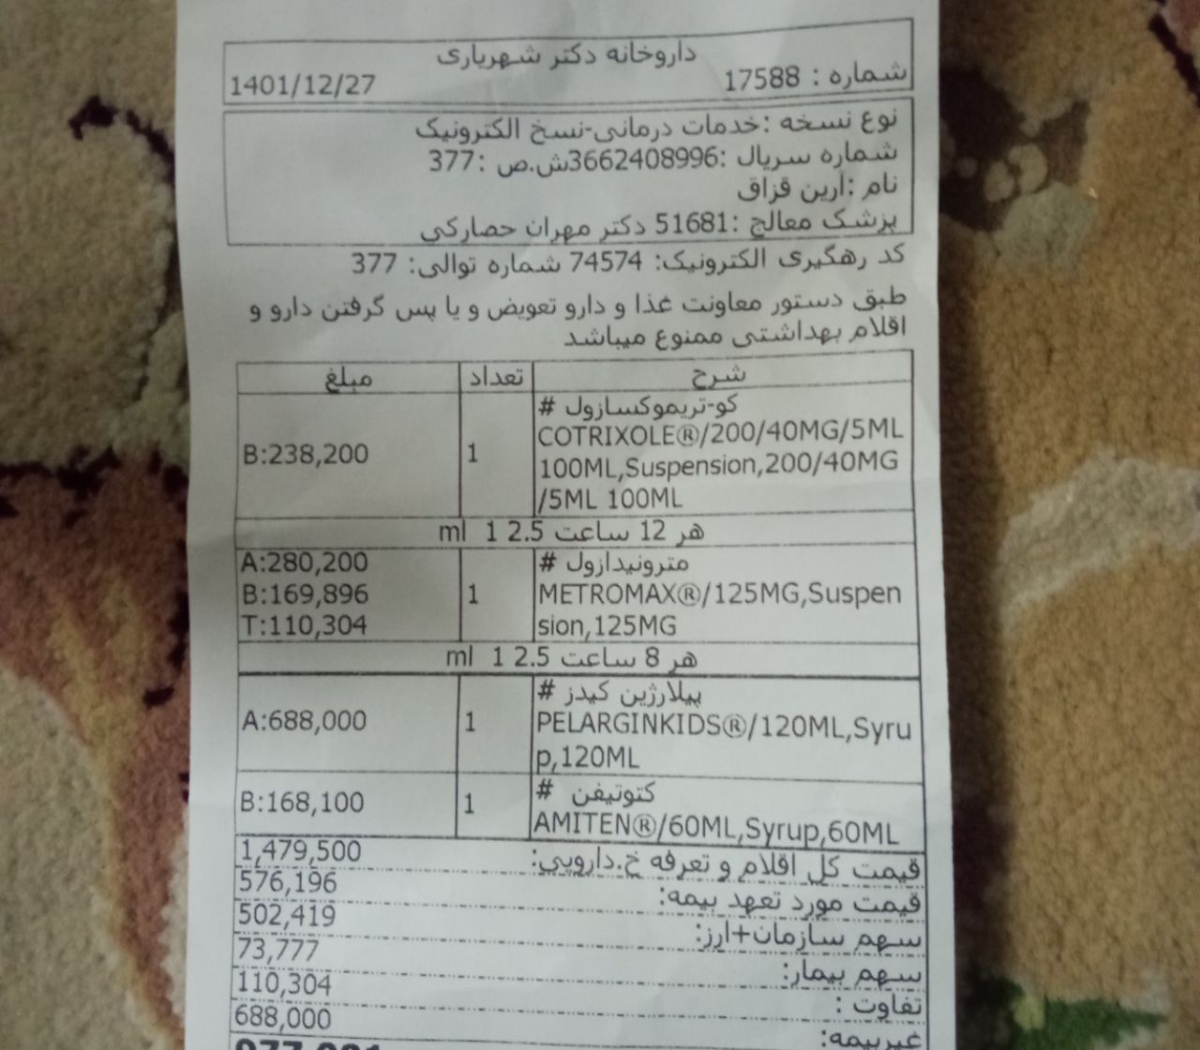 داروخانه دکتر شهریاری
شماره : 17588 1401/12/27
نوع نسخه :خدمات درمانی-نسخ الکترونیک
شماره سریال :3662408996ش.ص :377
نام :آرین قزاق
پزشک معالج :51681 دکتر مهران حصارکی
کد رهگیری الکترونیک: 74574 شماره توالی: 377
طبق دستور معاونت غذا و دارو تعویض و یا پس گرفتن دارو و
اقلام بهداشتی ممنوع میباشد
شرح تعداد مبلغ
کو-تریموکسازول #
COTRIXOLE®/200/40MG/5ML
100ML,Suspension,200/40MG 1 B:238,200
/5ML 100ML
هر 12 ساعت 2.5 1 ml
مترونیدازول # A:280,200
METROMAX®/125MG,Suspen 1 B:169,896
sion,125MG T:110,304
هر 8 ساعت 2.5 1 ml
پیلارژین کیدز #
PELARGINKIDS®/120ML,Syru 1 A:688,000
p,120ML
کتوتیفن #
AMITEN®/60ML,Syrup,60ML 1 B:168,100
قیمت کل اقلام و تعرفه خ.دارویی: 1,479,500
قیمت مورد تعهد بیمه: 576,196
سهم سازمان+ارز: 502,419
سهم بیمار: 73,777
تفاوت : 110,304
غیربیمه: 688,000